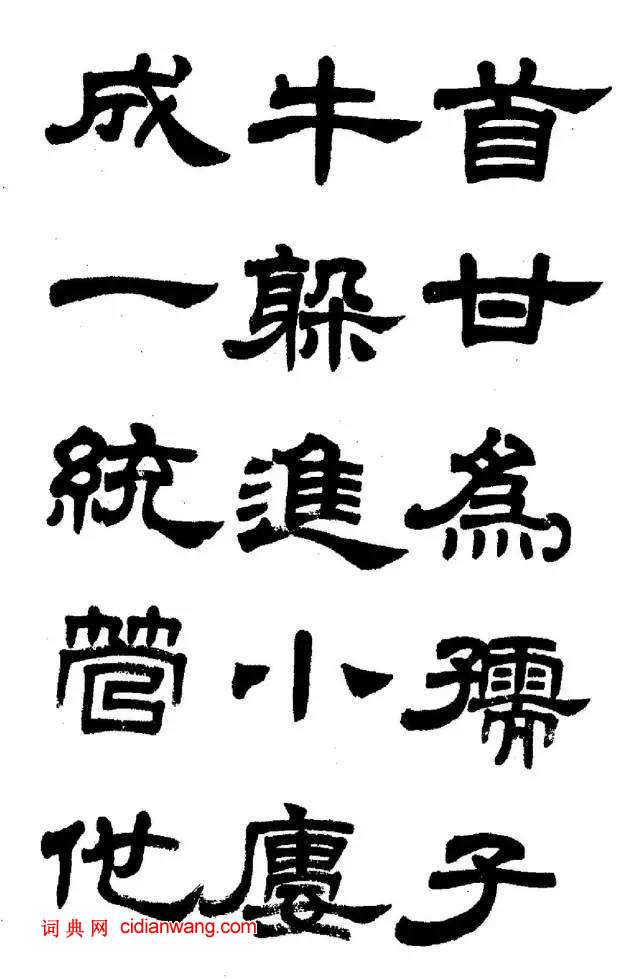 首甘為孺子
牛躲進小廔
成一統管他
词典网 cidianwang.com